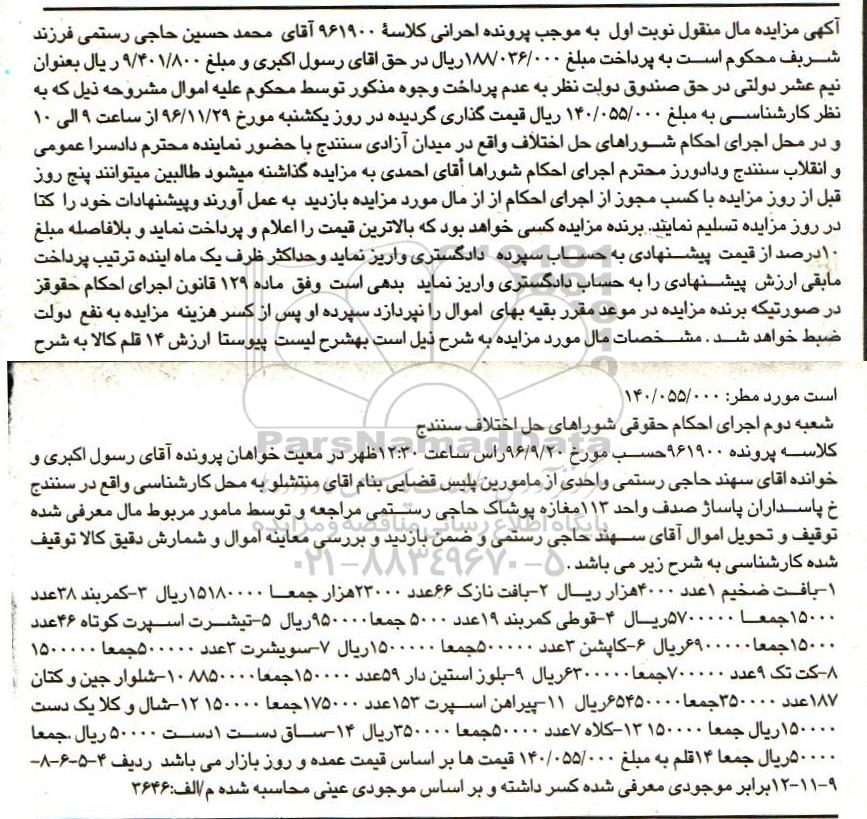 آگهی مزایده مال منقول نوبت اول به موجب پرونده احرانی کلاسهٔ ۹۶۱۹۰۰ آقای محمد حسین حاجی رستمی فرزند
شریف محکوم است به پرداخت مبلغ ۱۸۸/۰۳۶/۰۰۰ریال در حق اقای رسول اکبری و مبلغ ۹/۴۰۱/۸۰۰ ر یال بعنوان
نیم عشر دولتی در حق صندوق دولت نظر به عدم پرداخت وجوه مذکور توسط محکوم علیه اموال مشروحه ذیل که به
نظر کارشناسی به مبلغ ۱۴۰/۰۵۵/۰۰۰ ریال قیمت گذاری گردیده در روز یکشنبه مورخ ۹۶/۱۱/۲۹ از ساعت ۹ الی ۱۰
و در محل اجرای احکام شوراهای حل اختلاف واقع در میدان آزادی سنندج با حضور نماینده محترم دادسرا عمومی
و انقلاب سنندج ودادورز محترم اجرای احکام شوراها أقای احمدی به مزایده گذاشته میشود طالبین میتوانند پنج روز
قبل از روز مزایده با کسب مجوز از اجرای احکام از از مال مورد مزایده بازدید به عمل آورند وپیشنهادات خود را کتا
در روز مزایده تسلیم نمایند. برنده مزایده کسی خواهد بود که بالاترین قیمت را اعلام و پرداخت نماید و بلافاصله مبلغ
۱۰درصد از قیمت پیشنهادی به حساب سپرده دادگستری واریز نماید وحداکثر ظرف یک ماه اینده ترتیب پرداخت
مابقی ارزش پیشنهادی را به حساب دادگستری واریز نماید بدهی است وفق ماده ۱۲۹ قانون اجرای احکام حقوقز
در صورتیکه برنده مزایده در موعد مقرر بقیه بهای اموال را نپردازد سپرده او پس از کسر هزینه مزایده به نفع دولت
ضبط خواهد شد . مشخصات مال مورد مزایده به شرح ذیل است بهشرح لیست پیوستا ارزش ۱۴ قلم کالا به شرح
است مورد مطر: ۱۴۰/۰۵۵/۰۰۰
شعبه دوم اجرای احکام حقوقی شوراهای حل اختلاف سنندج
کلاسه پرونده ۹۶۱۹۰۰حسب مورخ ۹۶/۹/۲۰راس ساعت ۱۲:۳۰ظهر در معیت خواهان پرونده آقای رسول اکبری و
خوانده اقای سهند حاجی رستمی واحدی از مامورین پلیس قضایی بنام اقای منتشلو به محل کارشناسی واقع در سنندج
خ پاسداران پاساژ صدف واحد ۱۱۳مغازه پوشاک حاجی رستمی مراجعه و توسط مامور مربوط مال معرفی شده
توقیف و تحویل اموال آقای سهند حاجی رستمی و ضمن بازدید و بررسی معاینه اموال و شمارش دقیق کالا توقیف
شده کارشناسی به شرح زیر می باشد .
۱-بافت ضخیم ۱عدد ۴۰۰۰هزار ریال ۲-بافت نازک ۶۶عدد ۲۳۰۰۰هزار جمعا ۱۵۱۸۰۰۰۰ریال ۳-کمربند ۳۸عدد
۱۵۰۰۰جمعا ۵۷۰۰۰۰۰ریال ۴-قوطی کمربند ۱۹عدد ۵۰۰۰ جمعا۹۵۰۰۰۰ریال ۵-تیشرت اسپرت کوتاه ۴۶عدد
۱۵۰۰۰جمعا۶۹۰۰۰۰۰ریال ۶-کاپشن ۳عدد ۵۰۰۰۰۰جمعا ۱۵۰۰۰۰۰ریال ۷-سویشرت ۳عدد ۵۰۰۰۰۰جمعا ۱۵۰۰۰۰۰
۸-کت تک ۹عدد ۷۰۰۰۰۰جمعا۶۳۰۰۰۰۰ریال ۹-بلوز استین دار ۵۹عدد ۱۵۰۰۰۰جمعا۸۸۵۰۰۰۰ ۱۰-شلوار جین و کتان
۱۸۷عدد ۳۵۰۰۰۰جمعا۶۵۴۵۰۰۰۰ریال ۱۱-پیراهن اسپرت ۱۵۳عدد ۱۷۵۰۰۰جمعا ۱۵۰۰۰۰ ۱۲-شال و کلا یک دست
۱۵۰۰۰۰ریال جمعا ۱۵۰۰۰۰ ۱۳-کلاه ۷عدد ۵۰۰۰۰جمعا ۳۵۰۰۰۰ریال ۱۴-ساق دست ۱دست ۵۰۰۰۰ ریال .جمعا
۵۰۰۰۰ریال جمعا ۱۴قلم به مبلغ ۱۴۰/۰۵۵/۰۰۰ قیمت ها بر اساس قیمت عمده و روز بازار می باشد ردیف ۴-۵-۶-۸-
۹-۱۱-۱۲برابر موجودی معرفی شده کسر داشته و بر اساس موجودی عینی محاسبه شده م/الف:۳۶۴۶
ParsNamadData
پایگاه اطلاع رسانی مناقصه و مزایده
۰۲۱-۸۸۳۴۹۶۷۰-۵